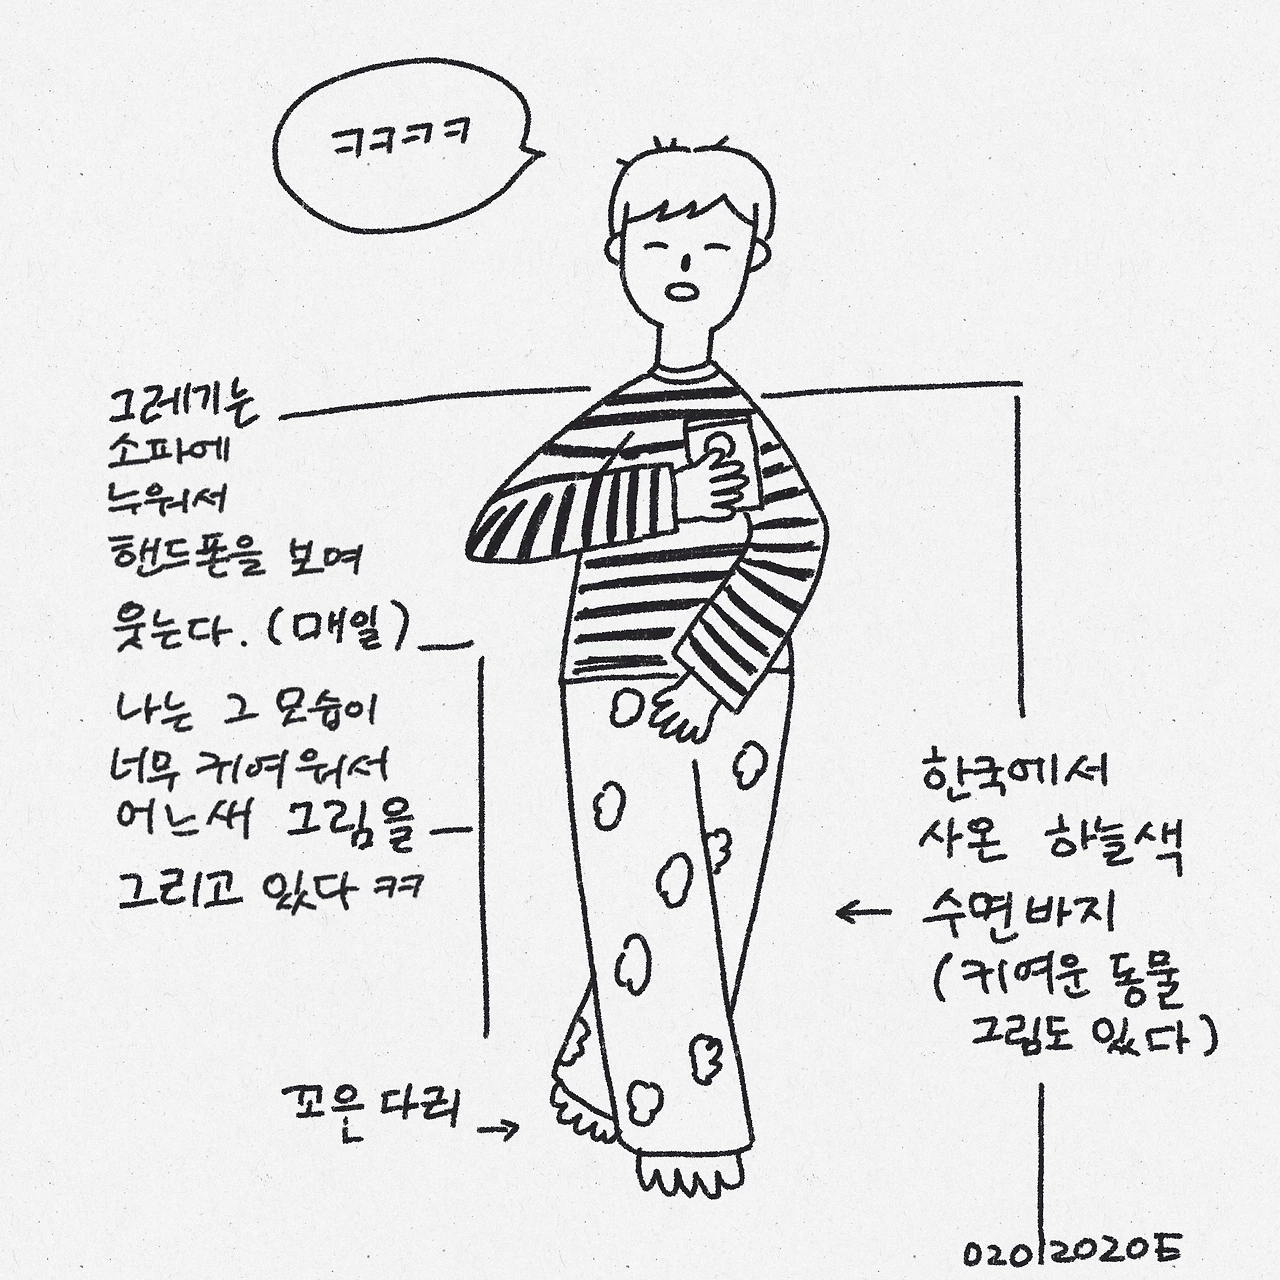 ㅋㅋㅋㅋ
그레기는
소파에
누워서
핸드폰을 보며
웃는다. (매일)
나는 그 모습이
너무 귀여워서
어느새 그림을
그리고 있다 ㅋㅋ
꼬은 다리
한국에서
사온 하늘색
수면바지
(귀여운 동물
그림도 있다)
020|2020E